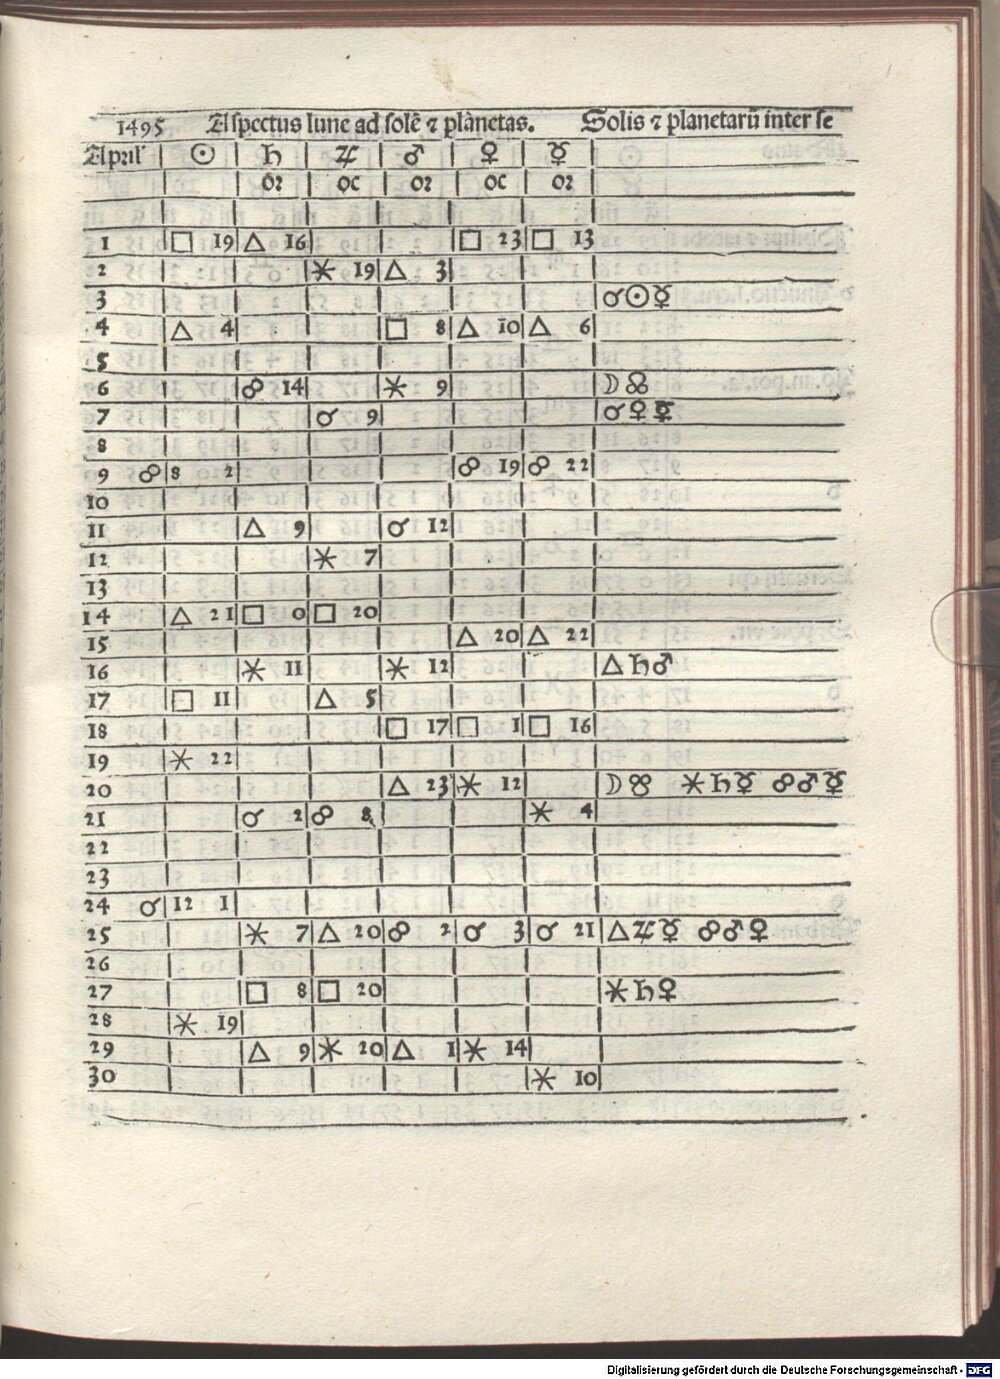 1495 Aspectus lune ad solē ⁊ planetas. Solis ⁊ planetarū inter se
April' ☉ ♄ ♃ ♂ ♀ ☿
oꝛ oc oꝛ oc oꝛ
1 □ 19 △ 16 □ 23 □ 13
2 ⚹ 19 △ 3
3 ☌☉☿
4 △ 4 □ 8 △ 10 △ 6
5
6 ☍ 14 ⚹ 9 ☽☊
7 ☌ 9 ☌♀☿
8
9 ☍ 8 2 ☍ 19 ☍ 22
10
11 △ 9 ☌ 12
12 ⚹ 7
13
14 △ 21 □ 0 □ 20
15 △ 20 △ 22
16 ⚹ 11 ⚹ 12 △♄♂
17 □ 11 △ 5
18 □ 17 □ 1 □ 16
19 ⚹ 22
20 △ 23 ⚹ 12 ☽☋ ⚹♄☿ ☍♂☿
21 ☌ 2 ☍ 8 ⚹ 4
22
23
24 ☌ 12 1
25 ⚹ 7 △ 20 ☍ 2 ☌ 3 ☌ 21 △♃☿ ☍♂♀
26
27 □ 8 □ 20 ⚹♄♀
28 ⚹ 19
29 △ 9 ⚹ 20 △ 1 ⚹ 14
30 ⚹ 10
Digitalisierung gefördert durch die Deutsche Forschungsgemeinschaft - DFG